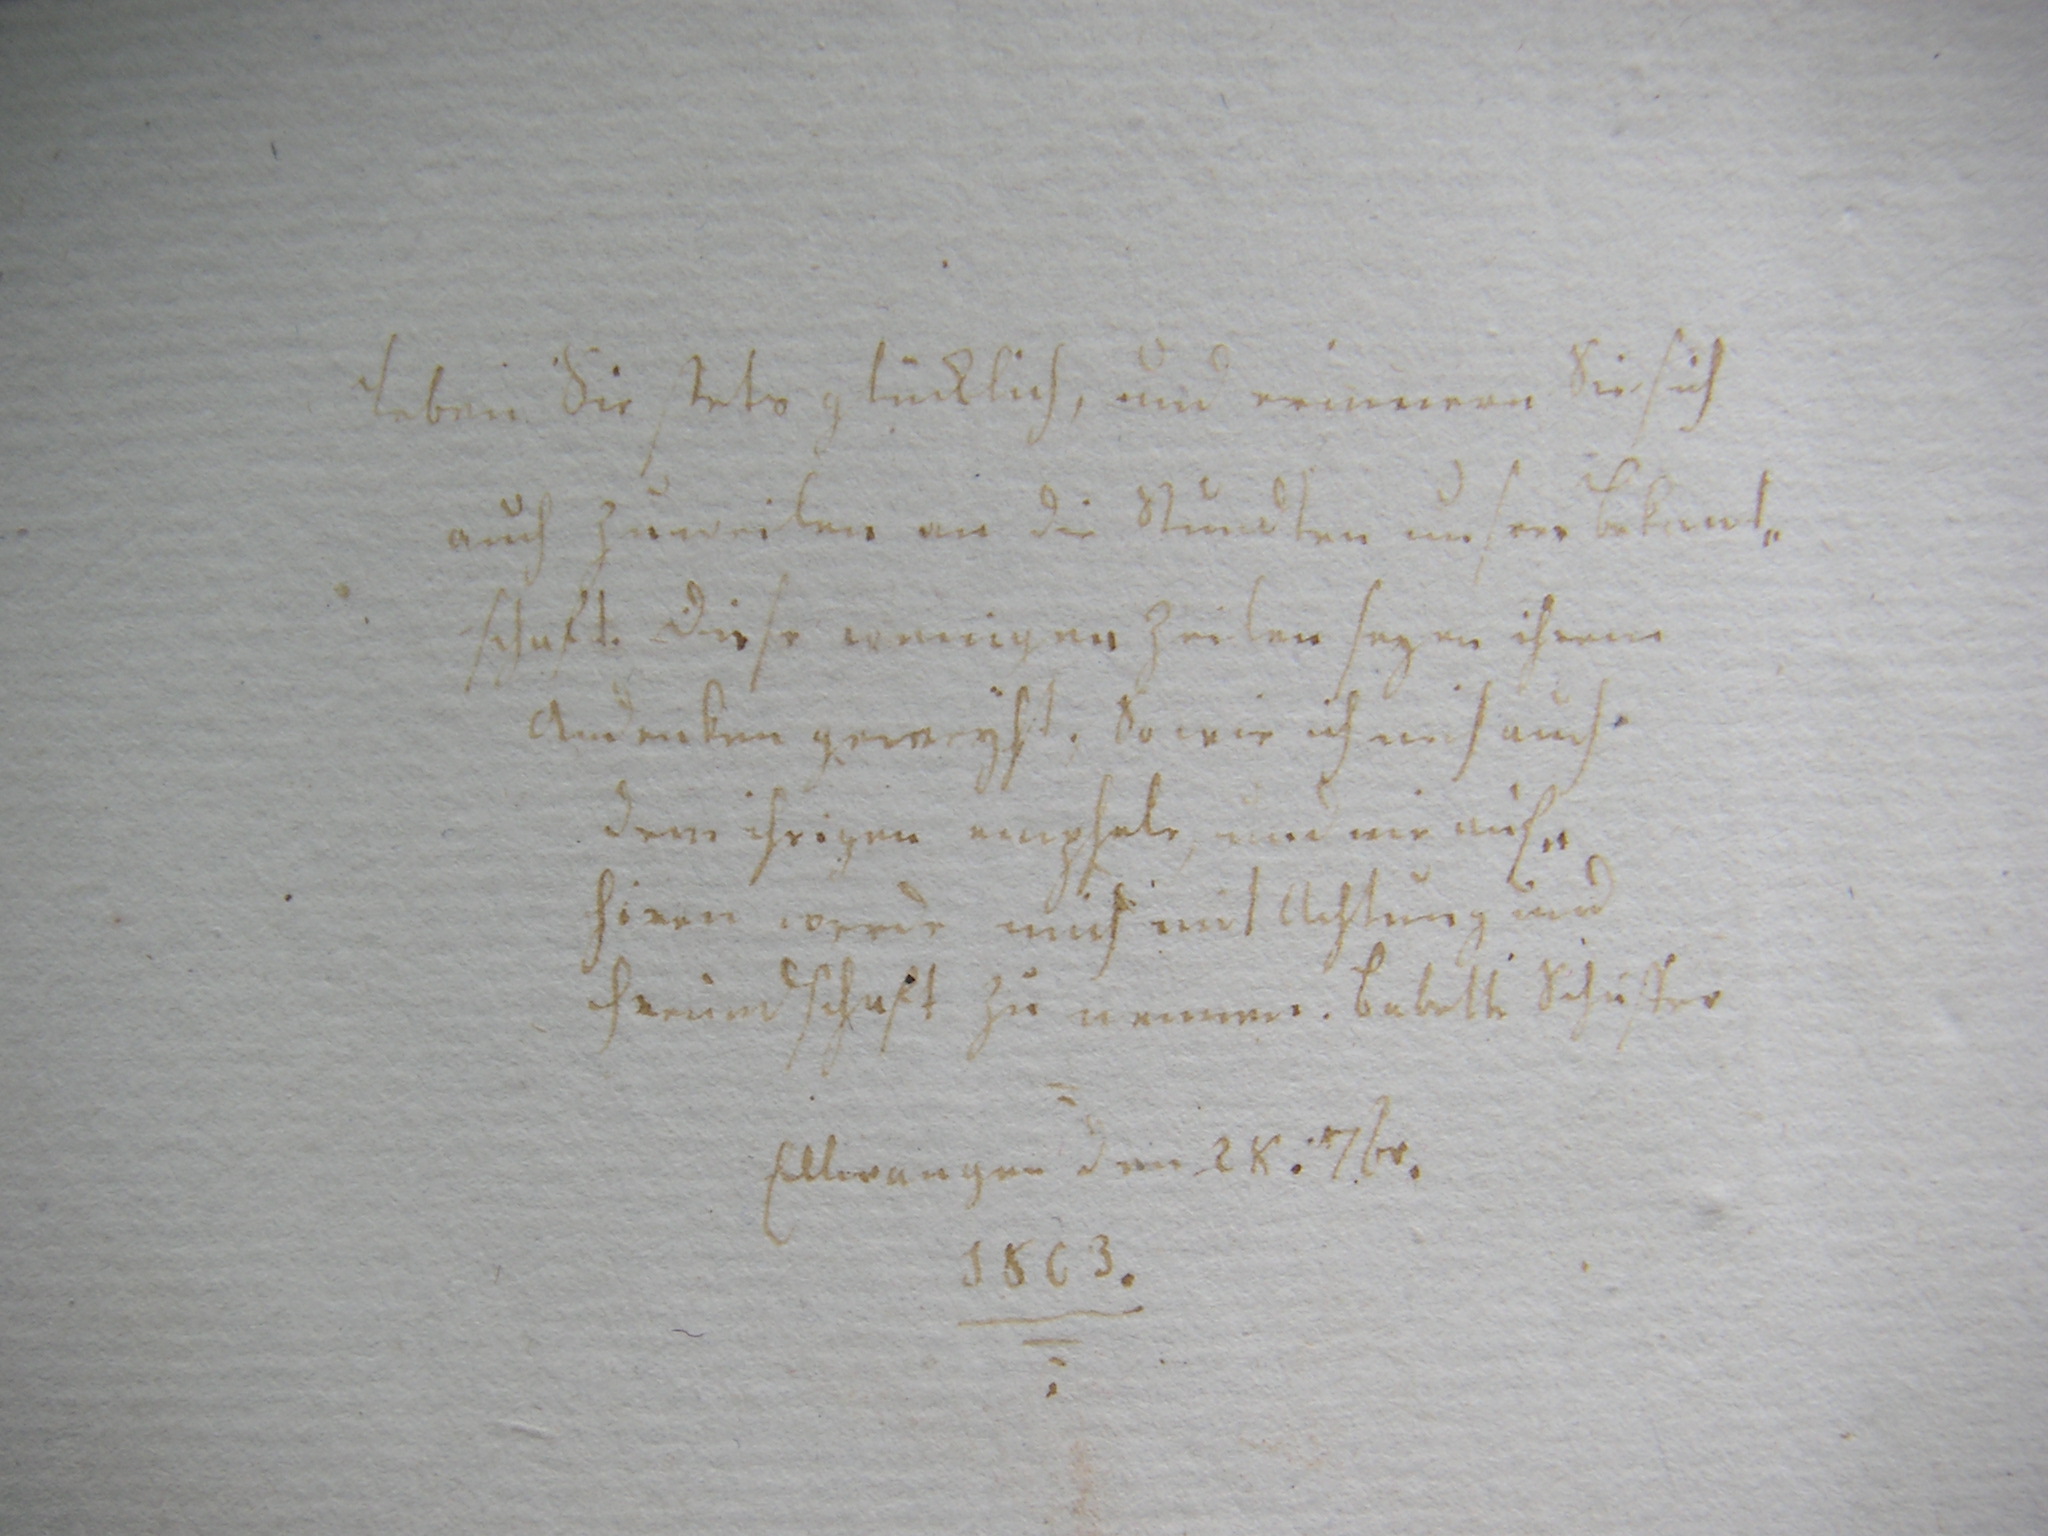 Leben Sie stets glücklich, und erinnern Sie sich
auch zuweilen an die Stundten unsrer bekant„
schaft. Diese wenigen Zeilen seyen ihrem
Andenken geweÿht. So wie ich mich auch
dem ihrigen empfehle, und nie auf„
hören werde mich mit Achtung und
Freundschaft zu nennen. Babette Schuster
Ellwangen den 28. 7br.
1803.